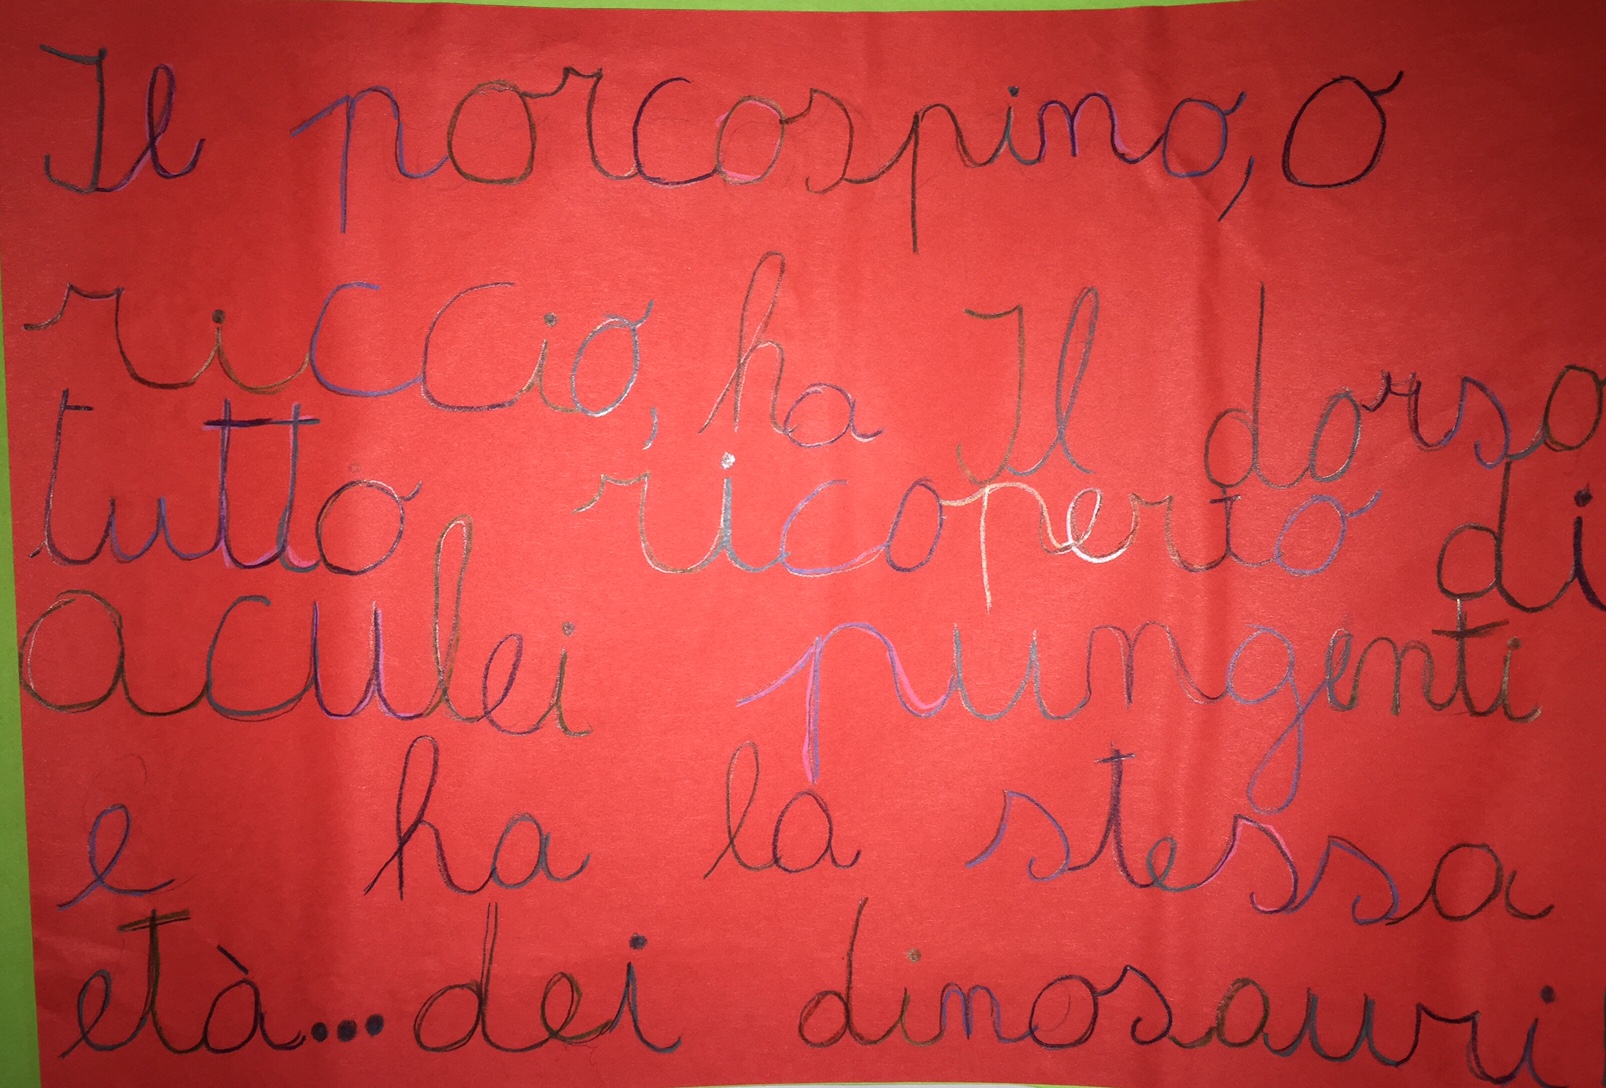 Il porcospino, o
riccio, ha Il dorso
tutto ricoperto di
aculei pungenti
e ha la stessa
età...dei dinosauri